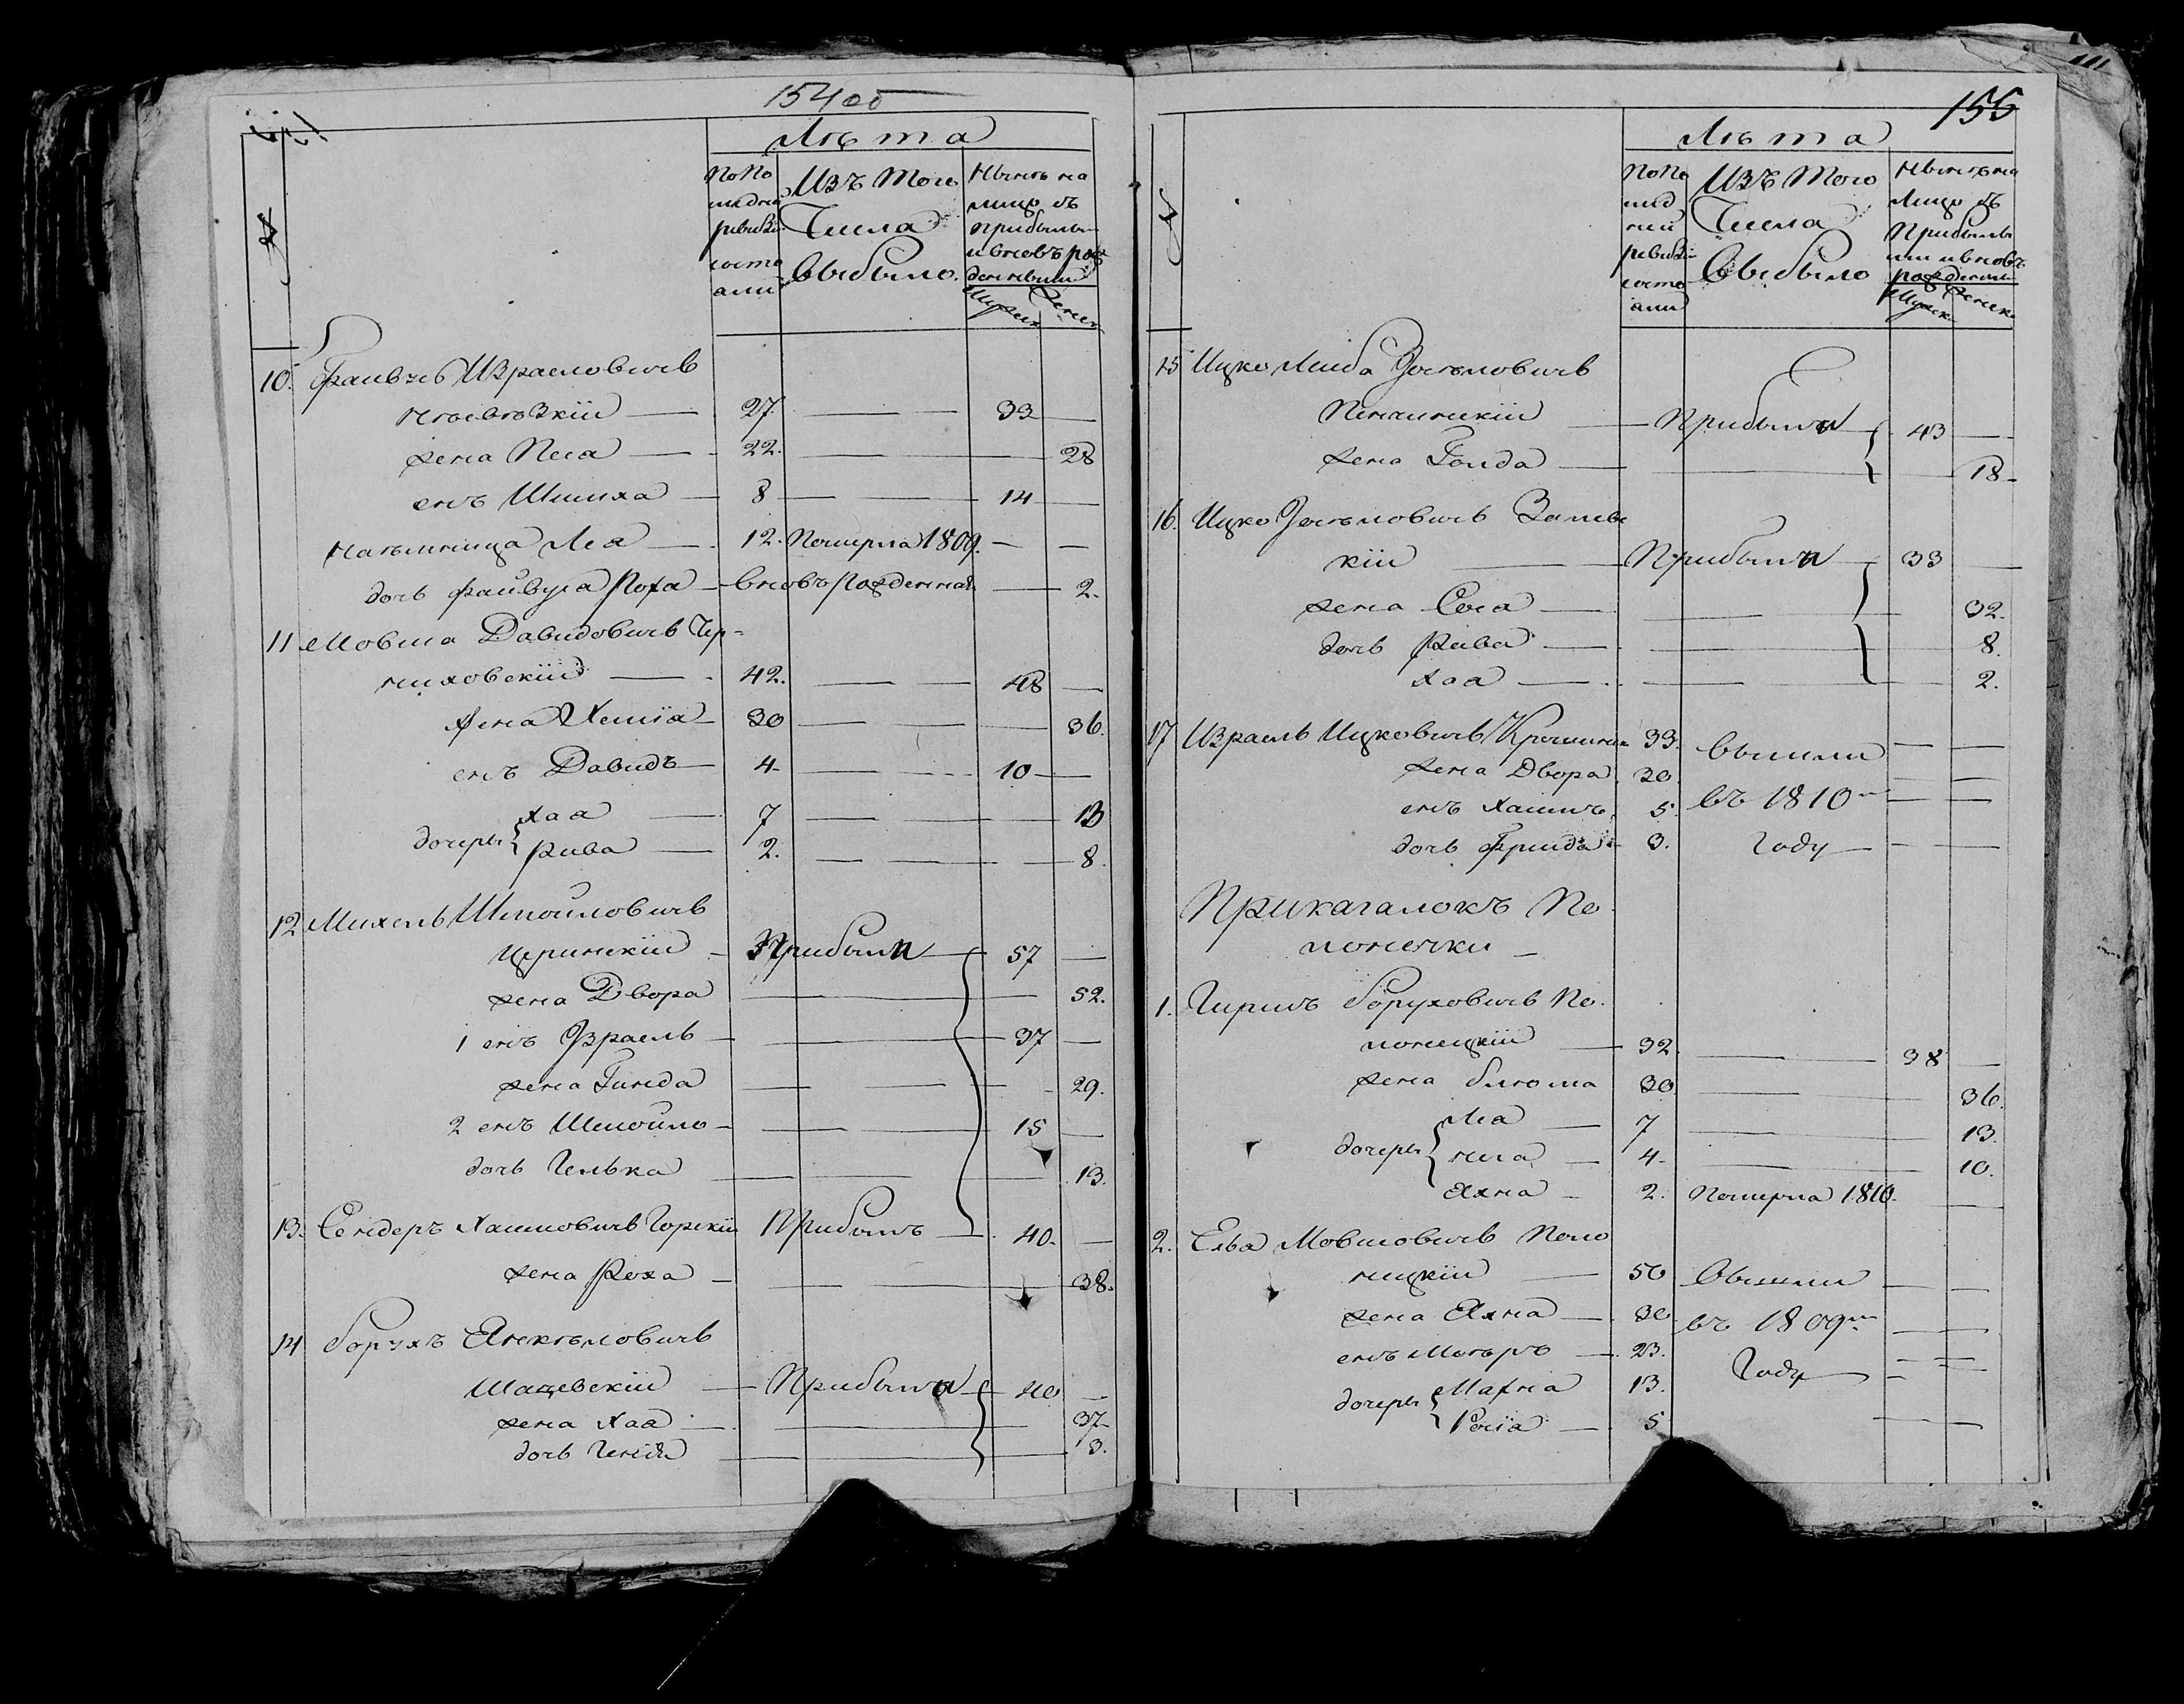 154 об
Лѣта
По по
следней
ревизи
состо
али
Изъ того
Числа
Выбыло.
Нынѣ на
лицо съ
прибылы
и вновь рож
денными
Мужеск
Женск
10. Файвель Израелевичъ
27. 33
жена Песа 22. 28
сынъ Шлиома 8 14
Племянница Леа 12. Померла 1809.
дочь Файвуша Роха вновь Рожденная 2.
11 Мовша Давидовичъ Чер-
ниховскій 42. 48
жена Хешia 30 36.
сынъ Давидъ 4 10
Хаа 7 13
дочеры
Рива 2. 8.
12 Михель Шмойловичъ
Циринскій Прибыли 57
жена Двора 52.
1 сынъ Израель 37
жена Гинда 29.
2 сынъ Шмойло 15
дочь Гелька 13.
13. Сендеръ Хаимовичъ Горскій Прибылъ 40.
жена Роха 38.
14 Борухъ
Шацевскій Прибыли 40
жена Хаа 37
дочь 3.
155
Лѣта
По по
след
ней
ревизи
состо
али
Изъ того
Числа
Выбыло
Нынѣ на
Лицо съ
Прибылы
ми и вновь
рожденны
Мужеск
Женск
15 Ицко Лейба Іоселовичъ
Пенчинскій Прибыли 43
жена Голда 18
16. Ицко Іоселовичъ Залев
кій Прибыли 33
жена Сося 32.
дочь Рива 8.
Хаа 2.
17 Израель Ицковичъ 33. Вышли
жена Двора 30.
сынъ Хаимъ 5. въ 1810м
дочь Фрида 3. Году
Прикагалокъ По
лонечки
1. Гиршъ Боруховичъ По
лонецкій 32. 38
жена Блюма 30. 36.
Леа 7 13.
дочеры
4 10.
Яхна 2. Померла 1810.
2. Еля Мовшовичъ Поло
нецкій 50 Вышли
жена Яхна 30 въ 1809м
сынъ Мееръ 23.
Году
дочеры Махна 13.
5